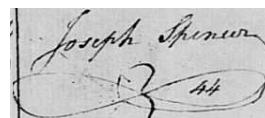 Joseph Spencer
44